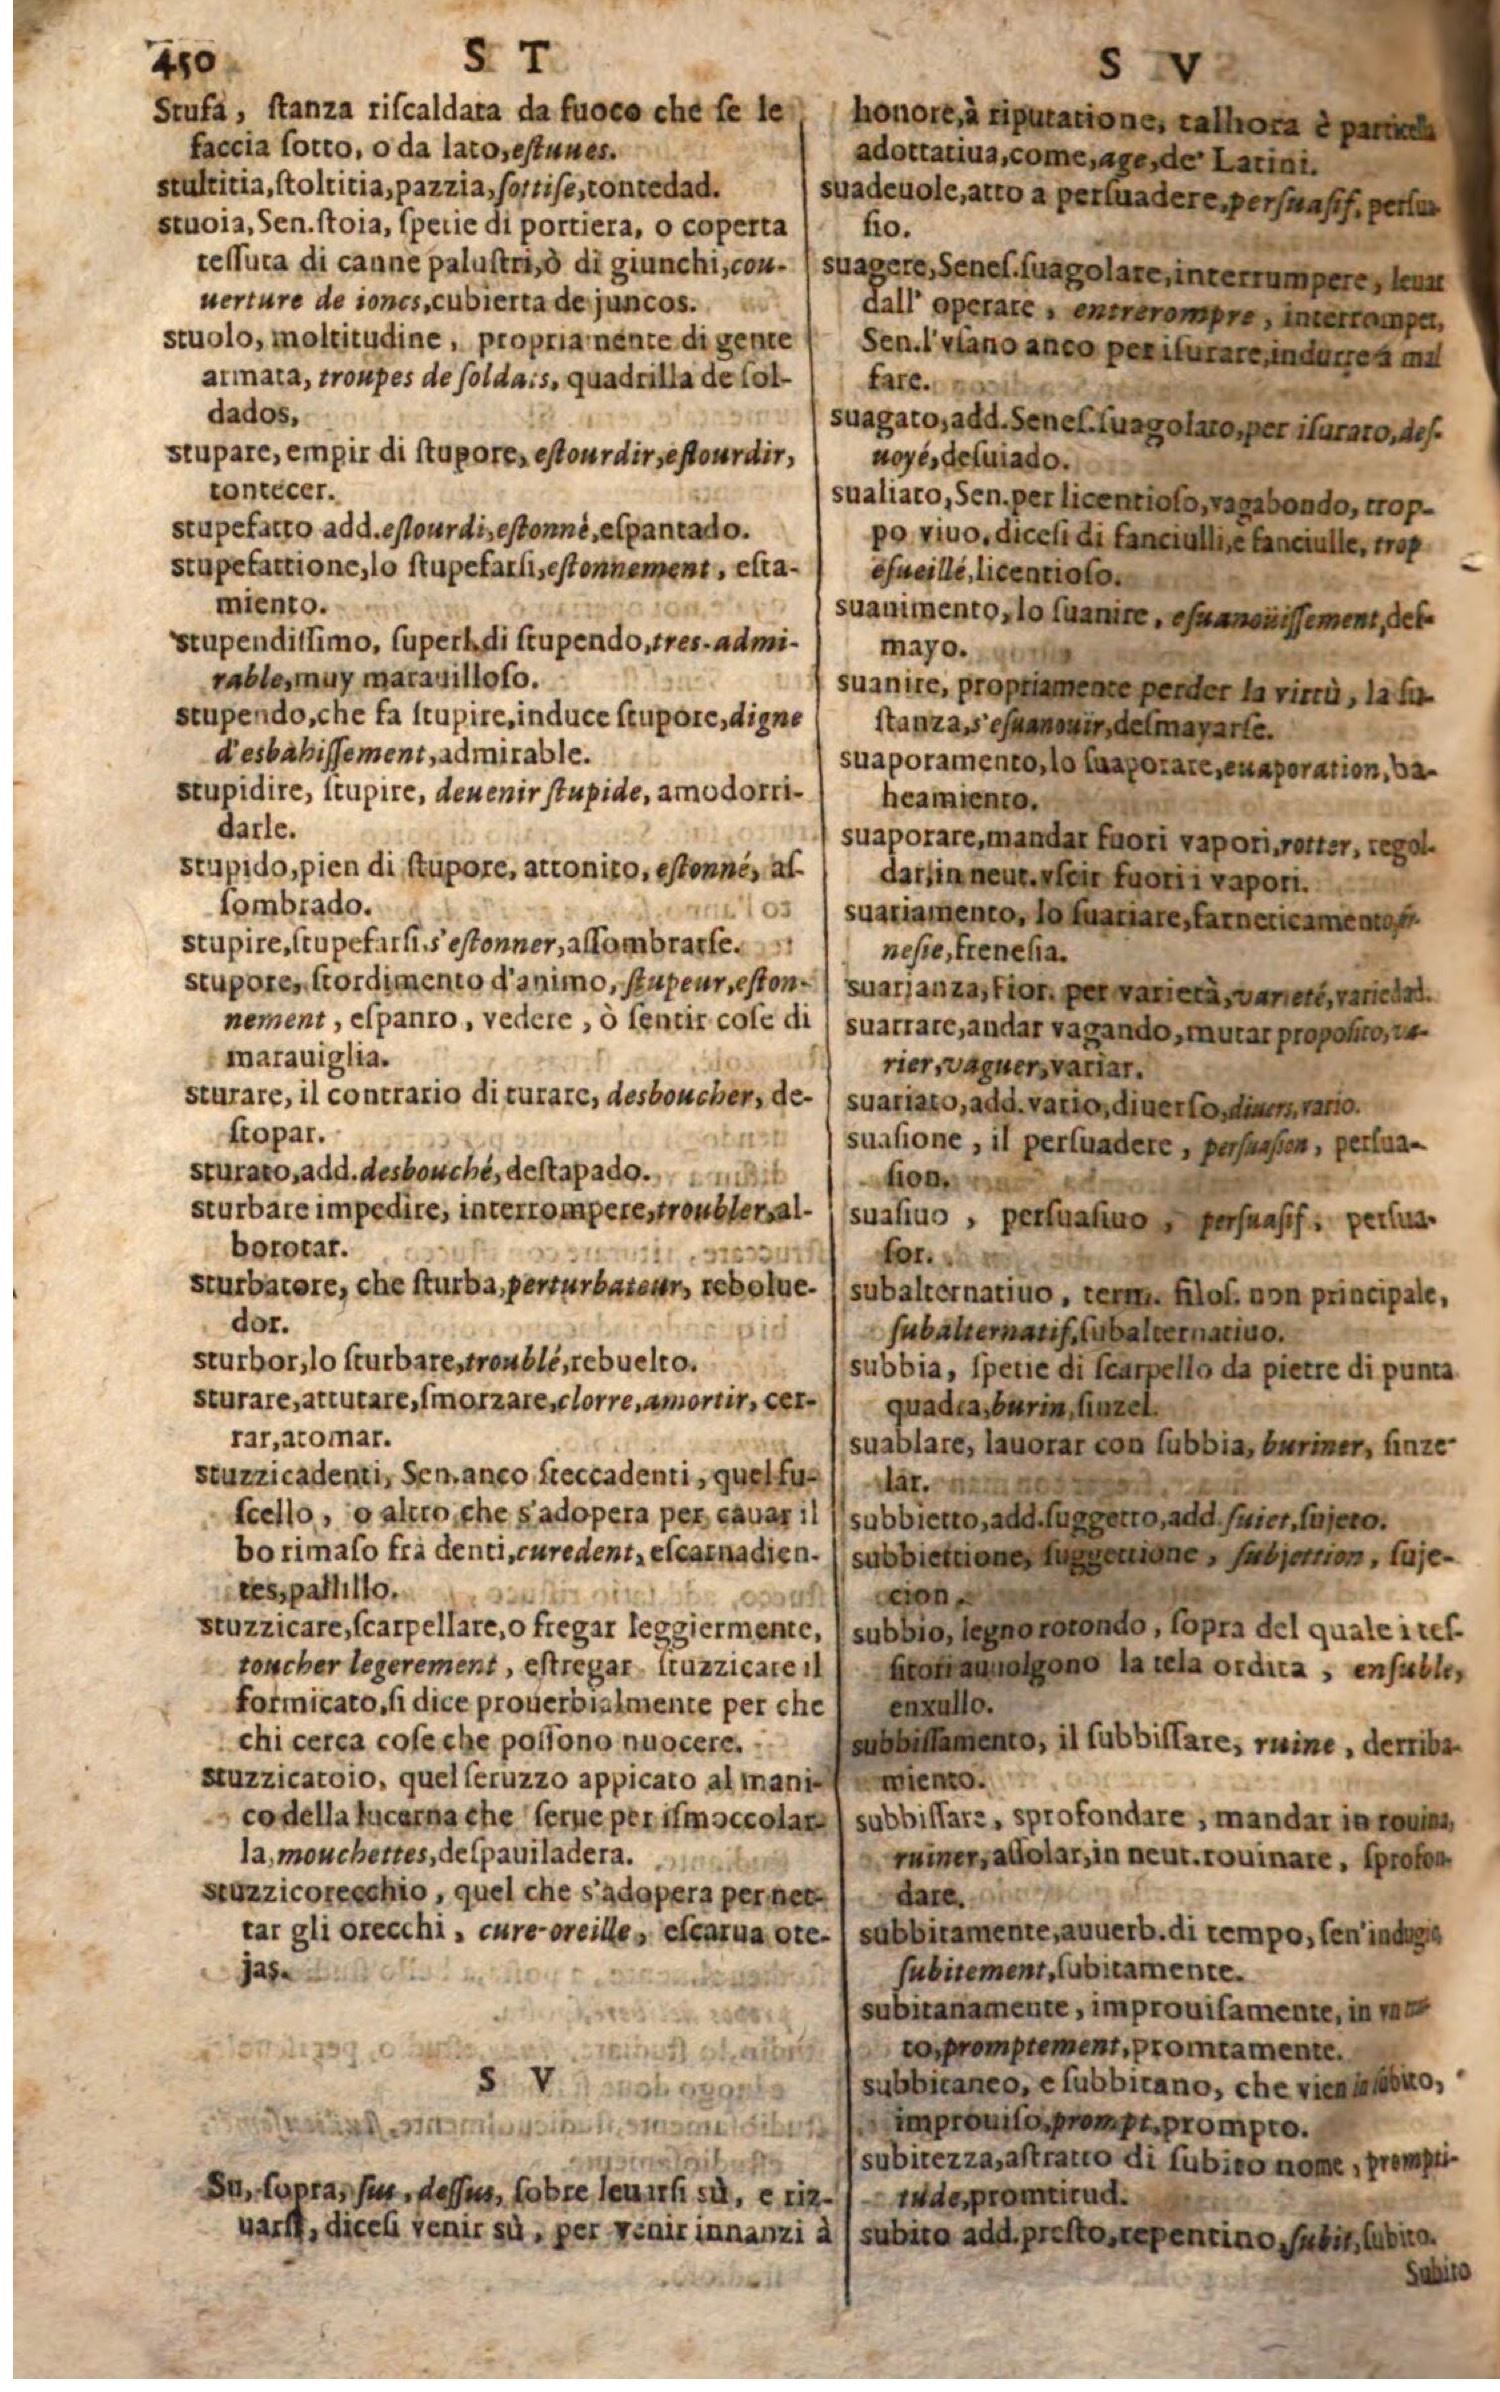 450
S T
Stufa, ſtanza riſcaldata da fuoco che ſe le
faccia ſotto, o da lato,eſtuues.
stultitia,ſtoltitia,pazzia,ſottiſe,tontedad.
stuoia,Sen.ſtoia, ſpetie di portiera, o coperta
teſſuta di canne paluſtri,ò di giunchi,cou-
uerture de ioncs,cubierta de juncos.
stuolo, moltitudine, propriamente di gente
armata, troupes de ſoldats, quadrilla de ſol-
dados,
stupare, empir di ſtupore, eſtourdir,eſtourdir,
tontecer.
stupefatto add.eſtourdi,eſtonné,eſpantado.
stupefattione,lo ſtupefarſi,eſtonnement, eſta-
miento.
stupendiſſimo, ſuperl.di ſtupendo,tres-admi-
rable,muy marauilloſo.
stupendo,che fa ſtupire,induce ſtupore,digne
d'esbahiſſement,admirable.
stupidire, ſtupire, deuenir ſtupide, amodorri-
darle.
stupido,pien di ſtupore, attonito, eſtonné, aſ-
ſombrado.
stupire,ſtupefarſi,s'eſtonner,aſſombrarſe.
stupore, ſtordimento d'animo, ſtupeur,eſton-
nement, eſpanto, vedere, ò ſentir coſe di
marauiglia.
sturare, il contrario di turare, desboucher, de-
ſtopar.
sturato,add.desbouché,deſtapado.
sturbare impedire, interrompere,troubler,al-
borotar.
sturbatore, che ſturba,perturbateur, rebolue-
dor.
sturbor,lo ſturbare,troublé,rebuelto.
sturare,attutare,ſmorzare,clorre,amortir, cer-
rar,atomar.
stuzzicadenti, Sen.anco ſteccadenti, quel fu-
ſcello, o altro che s'adopera per cauar il
bo rimaſo fra denti,curedent, eſcarnadien-
tes,pallillo.
stuzzicare,ſcarpellare,o fregar leggiermente,
toucher legerement, eſtregar ſtuzzicare il
formicato,ſi dice prouerbialmente per che
chi cerca coſe che poſſono nuocere.
stuzzicatoio, quel feruzzo appicato al mani-
co della lucerna che ſerue per iſmoccolar-
la,mouchettes,deſpauiladera.
stuzzicorecchio, quel che s'adopera per net-
tar gli orecchi, cure-oreille, eſcarua ore-
jas.
S V
Su, ſopra, ſus, deſſus, ſobre leuarſi sù, e riz-
uarſi, diceſi venir sù, per venir innanzi à
S V
honore,à riputatione, talhora è particella
adottatiua,come,age,de' Latini.
suadeuole,atto a perſuadere,perſuaſif, perſua-
ſio.
suagere,Seneſ.ſuagolare,interrumpere, leuar
dall' operare, entrerompre, interromper,
Sen.l'vſano anco per iſurare,indurre à mal
fare.
suagato,add.Seneſ.ſuagolato,per iſurato,deſ-
uoyé,deſuiado.
sualiato,Sen.per licentioſo,vagabondo, trop-
po viuo, diceſi di fanciulli,e fanciulle, trop
eſueillé,licentioſo.
suanimento,lo ſuanire, eſuanoüiſſement,deſ-
mayo.
suanire, propriamente perder la virtù, la ſu-
ſtanza,s'eſuanouir,deſmayarſe.
suaporamento,lo ſuaporare,euaporation,ba-
heamiento.
suaporare,mandar fuori vapori,rotter, regol-
dar,in neut.vſcir fuori i vapori.
suariamento, lo ſuariare,farneticamento,
neſie,freneſia.
suarianza,Fior. per varietà,varieté,variedad.
suarrare,andar vagando,mutar propoſito,va-
rier,vaguer,variar.
suariato,add.vario,diuerſo,diuers,vario.
suaſione, il perſuadere, perſuaſion, perſua-
ſion.
suaſiuo, perſuaſiuo, perſuaſif, perſua-
ſor.
subalternatiuo, term. filoſ. non principale,
ſubalternatif,ſubalternatiuo.
subbia, ſpetie di ſcarpello da pietre di punta
quadra,burin,ſinzel.
suablare, lauorar con ſubbia, buriner, ſinze-
lar.
subbietto,add.ſuggetto,add.ſuiet,ſujeto.
subbiettione, ſuggettione, ſubjettion, ſuje-
cion.
subbio, legno rotondo, ſopra del quale i teſ-
ſitori auuolgono la tela ordita, enſuble,
enxullo.
subbiſſamento, il ſubbiſſare, ruine, derriba-
miento.
subbiſſare, sprofondare, mandar in rouina,
ruiner,aſſolar,in neut.rouinare, ſprofon-
dare.
subbitamente,auuerb.di tempo,ſen'indugia
ſubitement,ſubitamente.
subitanamente, improuiſamente, in
to,promptement,promtamente.
subbitaneo, e ſubbitano, che vien in ſubito,
improuiſo,prompt,prompto.
subitezza,aſtratto di ſubito nome, prompti-
tude,promtitud.
subito add.preſto,repentino,ſubit,ſubito.
Subito